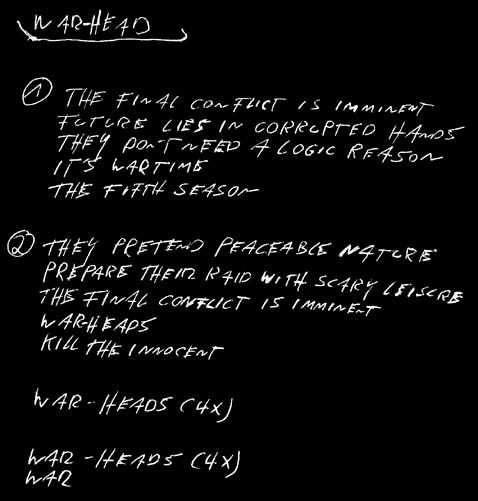 WAR-HEAD
① THE FINAL CONFLICT IS IMMINENT
FUTURE LIES IN CORRUPTED HANDS
THEY DON'T NEED A LOGIC REASON
IT'S WARTIME
THE FIFTH SEASON
② THEY PRETEND PEACEABLE NATURE
PREPARE THEIR RAID WITH SCARY LEISURE
THE FINAL CONFLICT IS IMMINENT
WAR-HEADS
KILL THE INNOCENT
WAR-HEADS (4X)
WAR-HEADS (4X)
WAR